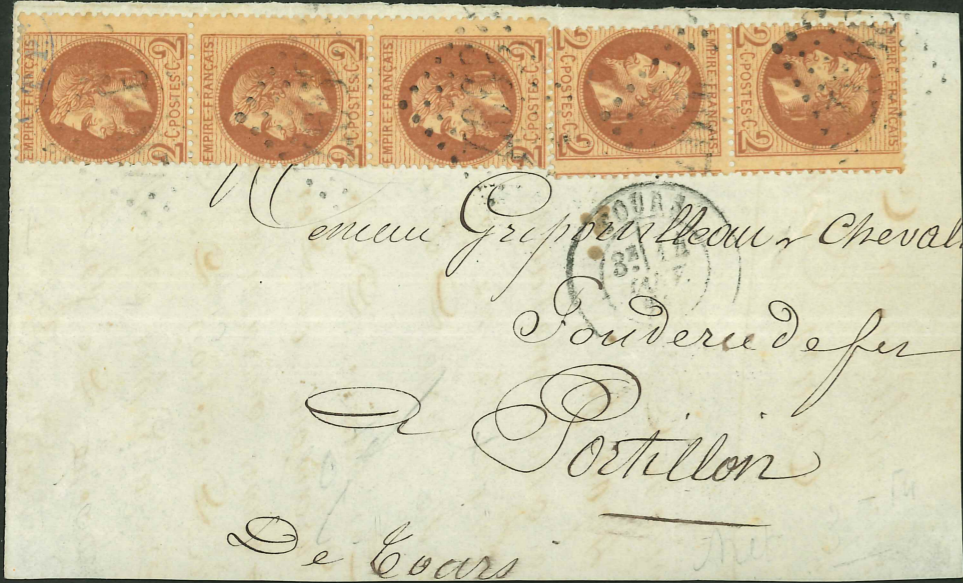 EMPIRE·FRANÇAIS 2 C·POSTES·C 2
EMPIRE·FRANÇAIS 2 C·POSTES·C 2
EMPIRE·FRANÇAIS 2 C·POSTES·C 2
EMPIRE·FRANÇAIS 2 C·POSTES·C 2
EMPIRE·FRANÇAIS 2 C·POSTES·C 2
TOURS
Gripouilleau & Cheval
Fonderie de fer
A Portillon
De Tours